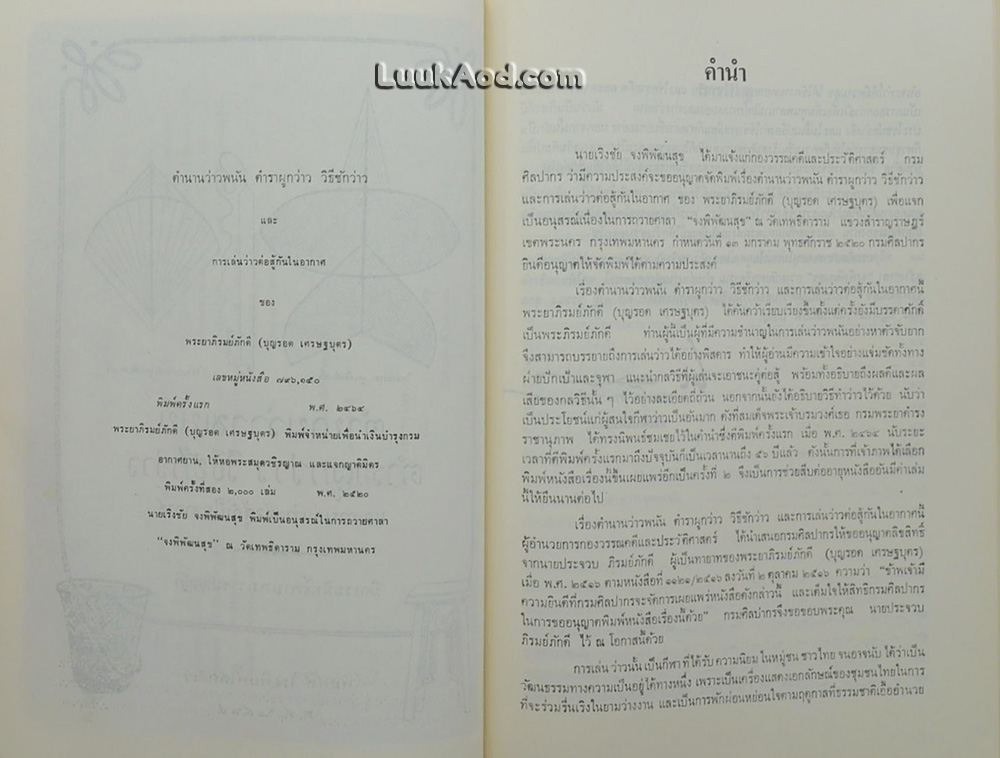 LuukAod.com
ตำนานว่าวพนัน ตำราผูกว่าว วิธีชักว่าว
และ
การเล่นว่าวต่อสู้กันในอากาศ
ของ
พระยาภิรมย์ภักดี (บุญรอด เศรษฐบุตร)
เลขหมู่หนังสือ ๗๙๖.๑๕๐
พิมพ์ครั้งแรก พ.ศ. ๒๔๖๔
พระยาภิรมย์ภักดี (บุญรอด เศรษฐบุตร) พิมพ์จำหน่ายเพื่อนำเงินบำรุงกรม
อากาศยาน, ให้หอพระสมุดวชิรญาณ และแจกญาติมิตร
พิมพ์ครั้งที่สอง ๒,๐๐๐ เล่ม พ.ศ. ๒๕๒๐
นายเริงชัย จงพิพัฒนสุข พิมพ์เป็นอนุสรณ์ในการถวายศาลา
“จงพิพัฒนสุข” ณ วัดเทพธิดาราม กรุงเทพมหานคร
คำนำ
นายเริงชัย จงพิพัฒนสุข ได้มาแจ้งแก่กองวรรณคดีและประวัติศาสตร์ กรม
ศิลปากร ว่ามีความประสงค์จะขออนุญาตจัดพิมพ์เรื่องตำนานว่าวพนัน ตำราผูกว่าว วิธีชักว่าว
และการเล่นว่าวต่อสู้กันในอากาศ ของ พระยาภิรมย์ภักดี (บุญรอด เศรษฐบุตร) เพื่อแจก
เป็นอนุสรณ์เนื่องในการถวายศาลา “จงพิพัฒนสุข” ณ วัดเทพธิดาราม แขวงสำราญราษฎร์
เขตพระนคร กรุงเทพมหานคร กำหนดวันที่ ๑๓ มกราคม พุทธศักราช ๒๕๒๐ กรมศิลปากร
ยินดีอนุญาตให้จัดพิมพ์ได้ตามความประสงค์
เรื่องตำนานว่าวพนัน ตำราผูกว่าว วิธีชักว่าว และการเล่นว่าวต่อสู้กันในอากาศนี้
พระยาภิรมย์ภักดี (บุญรอด เศรษฐบุตร) ได้ค้นคว้าเรียบเรียงขึ้นตั้งแต่ครั้งยังมีบรรดาศักดิ์
เป็นพระภิรมย์ภักดี ท่านผู้นี้เป็นผู้ที่มีความชำนาญในการเล่นว่าวพนันอย่างหาตัวจับยาก
จึงสามารถบรรยายถึงการเล่นว่าวได้อย่างพิสดาร ทำให้ผู้อ่านมีความเข้าใจอย่างแจ่มชัดทั้งทาง
ฝ่ายปักเป้าและจุฬา แนะนำกลวิธีที่ผู้เล่นจะเอาชนะคู่ต่อสู้ พร้อมทั้งอธิบายถึงผลดีและผล
เสียของกลวิธีนั้น ๆ ไว้อย่างละเอียดถี่ถ้วน นอกจากนั้นยังได้อธิบายวิธีทำว่าวไว้ด้วย นับว่า
เป็นประโยชน์แก่ผู้สนใจกีฬาว่าวเป็นอันมาก ดังที่สมเด็จพระเจ้าบรมวงศ์เธอ กรมพระยาดำรง
ราชานุภาพ ได้ทรงนิพนธ์ชมเชยไว้ในคำนำซึ่งตีพิมพ์ครั้งแรก เมื่อ พ.ศ. ๒๔๖๔ นับระยะ
เวลาที่ตีพิมพ์ครั้งแรกมาถึงปัจจุบันก็เป็นเวลานานถึง ๕๖ ปีแล้ว ดังนั้นการที่เจ้าภาพได้เลือก
พิมพ์หนังสือเรื่องนี้ขึ้นเผยแพร่อีกเป็นครั้งที่ ๒ จึงเป็นการช่วยสืบต่ออายุหนังสืออันมีค่าเล่ม
นี้ให้ยืนนานต่อไป
เรื่องตำนานว่าวพนัน ตำราผูกว่าว วิธีชักว่าว และการเล่นว่าวต่อสู้กันในอากาศนี้
ผู้อำนวยการกองวรรณคดีและประวัติศาสตร์ ได้นำเสนอกรมศิลปากรให้ขออนุญาตลิขสิทธิ์
จากนายประจวบ ภิรมย์ภักดี ผู้เป็นทายาทของพระยาภิรมย์ภักดี (บุญรอด เศรษฐบุตร)
เมื่อ พ.ศ. ๒๕๑๖ ตามหนังสือที่ ๑๑๒๑/๒๕๑๖ ลงวันที่ ๒ ตุลาคม ๒๕๑๖ ความว่า “ข้าพเจ้ามี
ความยินดีที่กรมศิลปากรจะจัดการเผยแพร่หนังสือดังกล่าวนี้ และเต็มใจให้สิทธิกรมศิลปากร
ในการขออนุญาตพิมพ์หนังสือเรื่องนี้ด้วย” กรมศิลปากรจึงขอขอบพระคุณ นายประจวบ
ภิรมย์ภักดี ไว้ ณ โอกาสนี้ด้วย
การเล่นว่าวนั้น เป็นกีฬาที่ได้รับความนิยมในหมู่ชนชาวไทย จนอาจนับได้ว่าเป็น
วัฒนธรรมทางความเป็นอยู่ได้ทางหนึ่ง เพราะเป็นเครื่องแสดงเอกลักษณ์ของชุมชนไทยในการ
ที่จะร่วมรื่นเริงในยามว่างงาน และเป็นการพักผ่อนหย่อนใจตามฤดูกาลที่ธรรมชาติเอื้ออำนวย